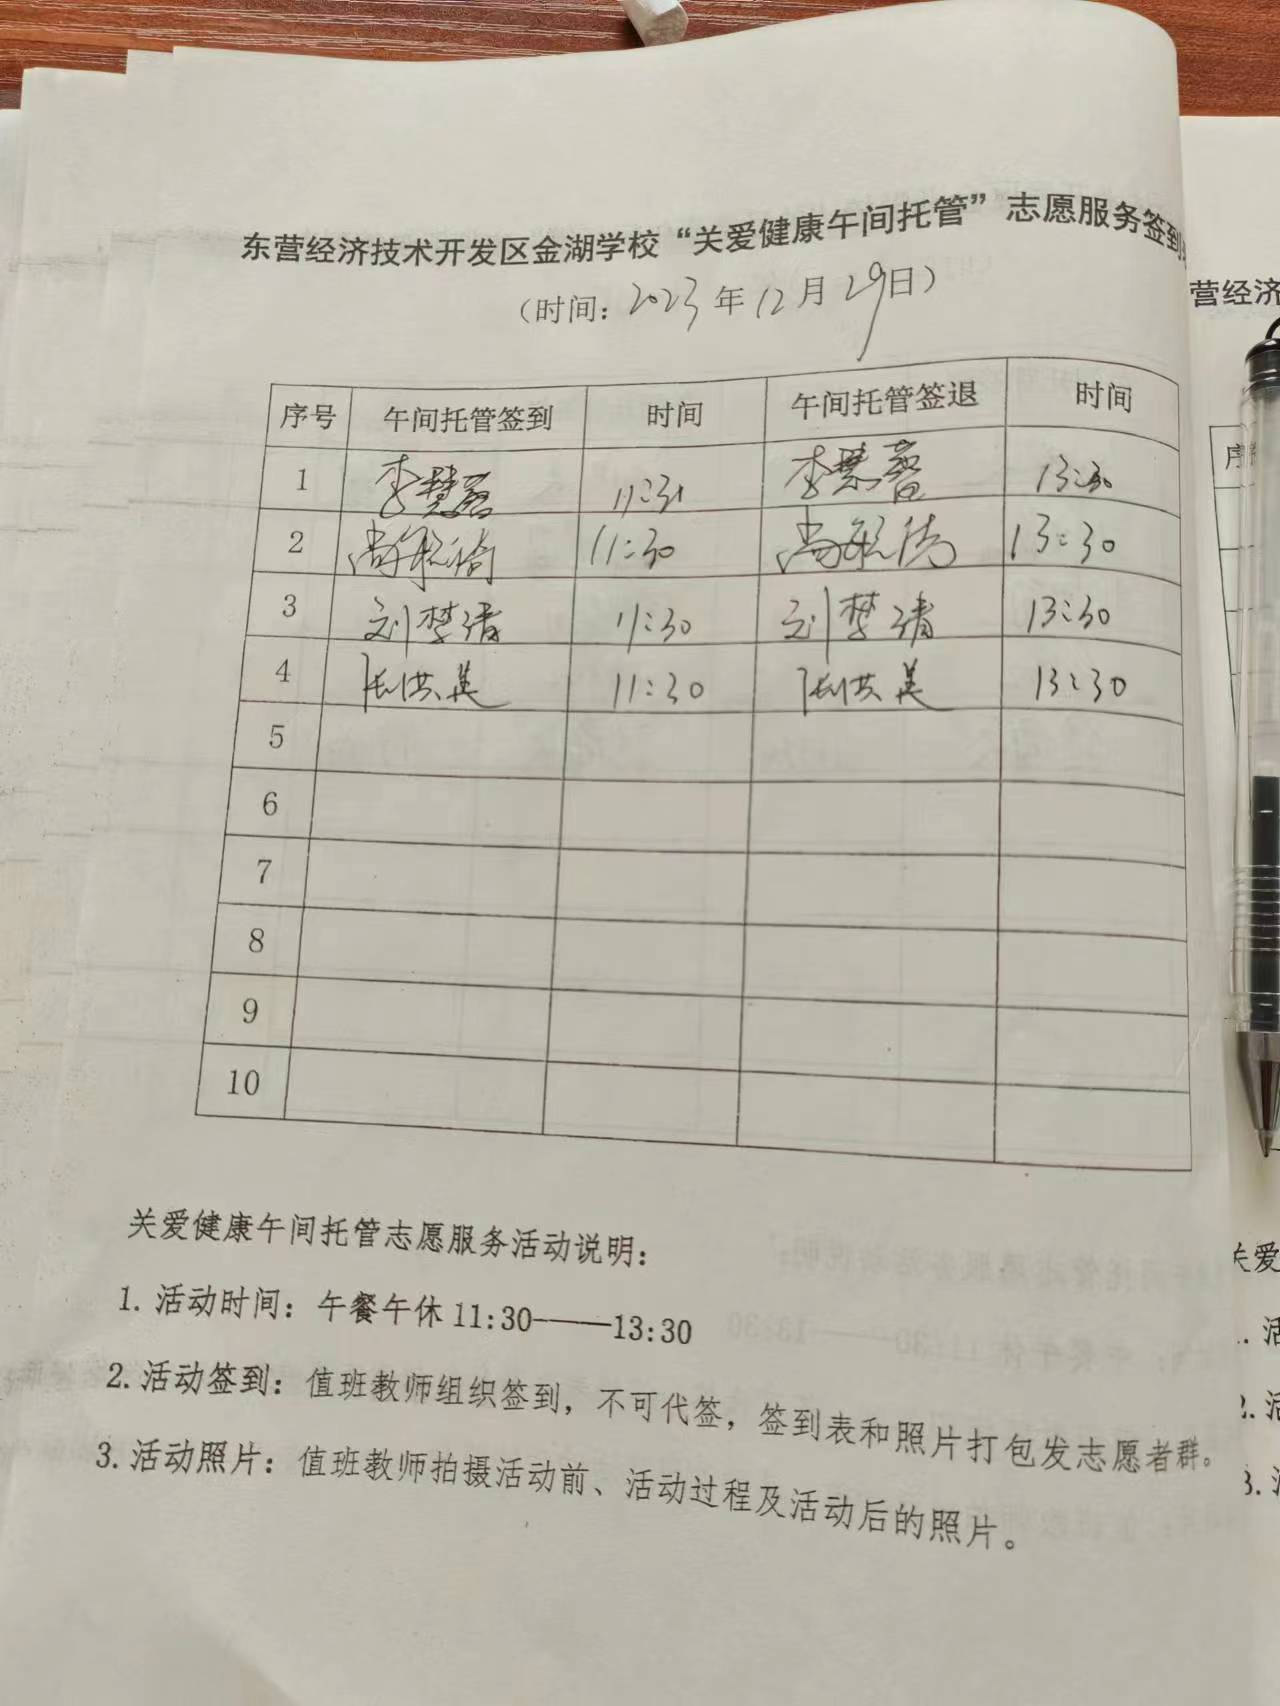 东营经济技术开发区金湖学校“关爱健康午间托管”志愿服务签到
（时间：2023年12月29日）
序号 午间托管签到 时间 午间托管签退 时间
1 李慧 11:31 李慧 13:30
2 尚 11:30 尚 13:30
3 刘梦清 11:30 刘梦清 13:30
4 张洪美 11:30 张洪美 13:30
5
6
7
8
9
10
关爱健康午间托管志愿服务活动说明：
1. 活动时间：午餐午休 11:30——13:30
2. 活动签到：值班教师组织签到，不可代签，签到表和照片打包发志愿者群。
3. 活动照片：值班教师拍摄活动前、活动过程及活动后的照片。
营经济
序
关爱
1. 活
2. 活
3.